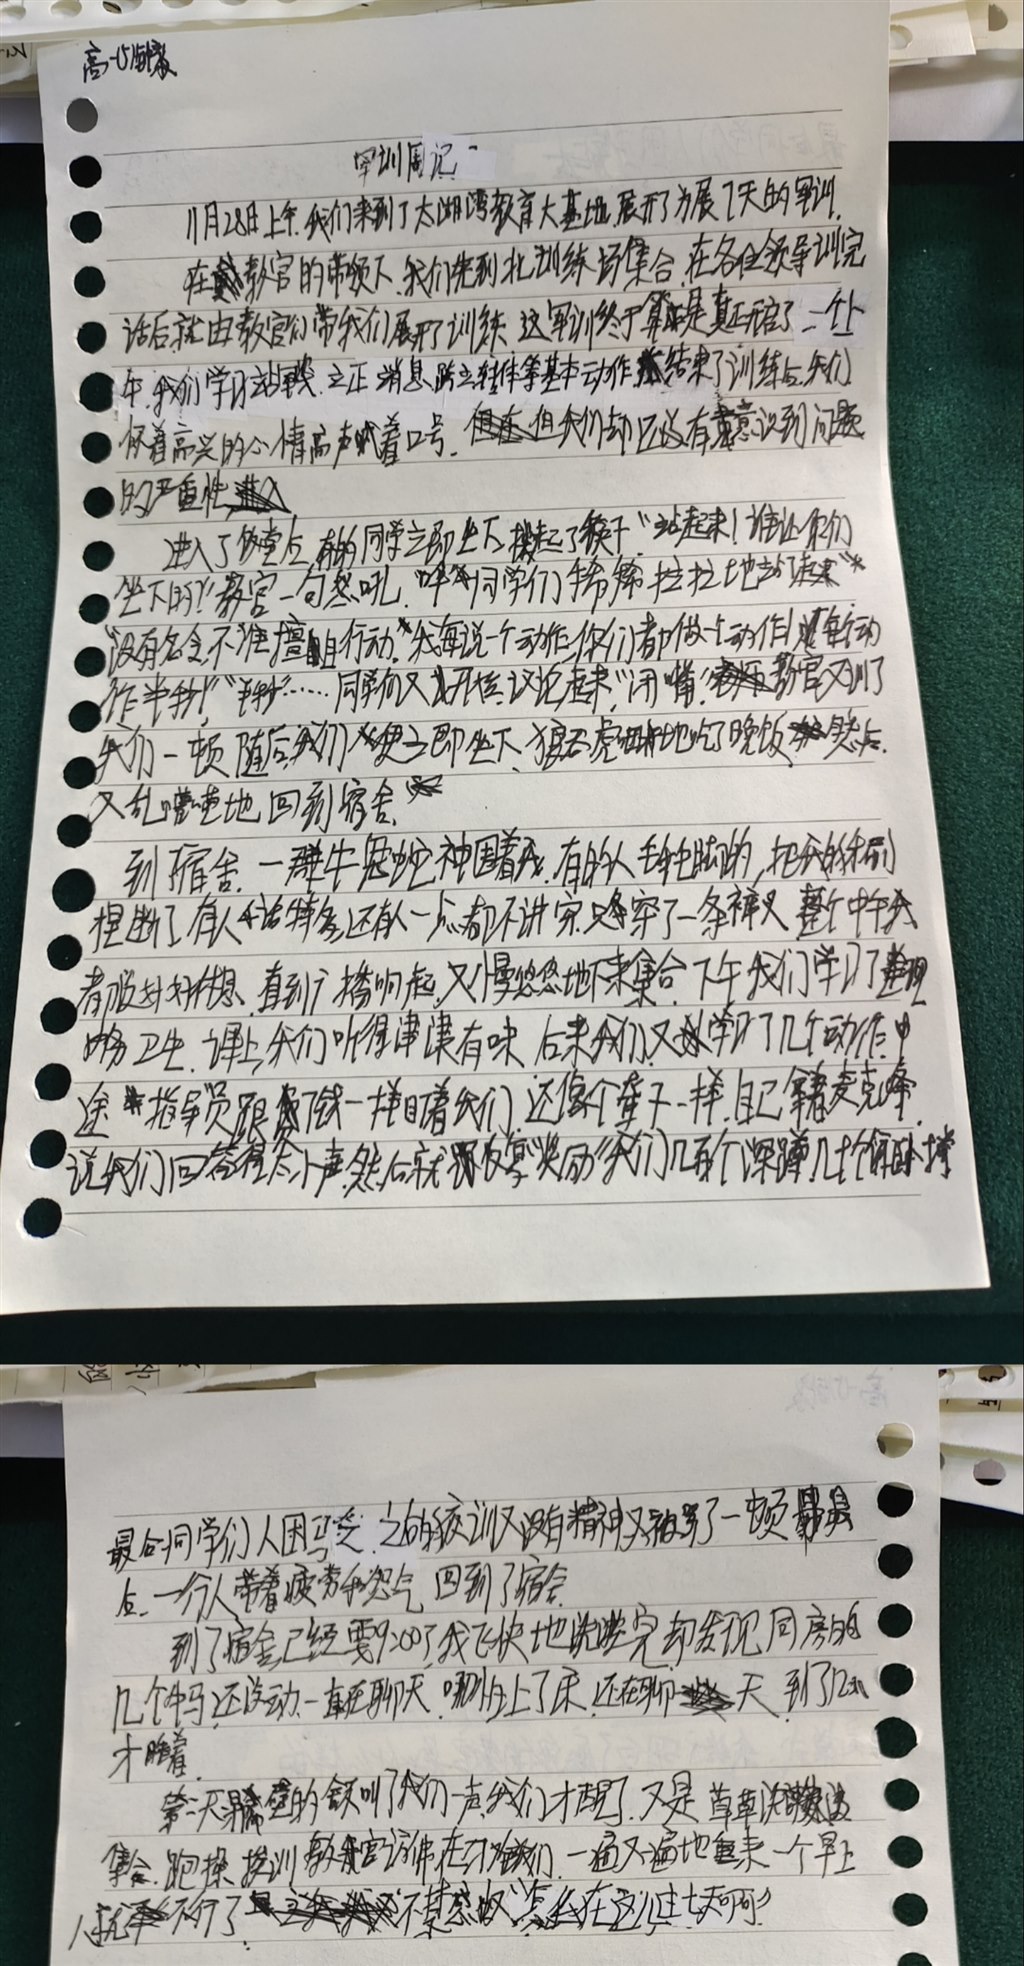 高一
军训周记一
11月28日上午,我们来到了太湖湾教育大基地,展开了为展7天的军训.
在教官的带领下,我们先到北训练场集合,在各位领导训完
话后,就由教官们带我们展开了训练,这军训终于算是真正开启了,一个上
午,我们学习站军姿,立正,稍息,跨立,转体等基本动作,结束了训练后,我们
怀着高兴的心情高声喊着口号.但我们却还没有意识到问题
的严重性
进入了食堂后,有的同学立即坐下,拨起了筷子,"站起来!谁让你们
坐下的?!"教官一句怒吼,同学们稀稀拉拉地站了起来
"没有命令,不准擅自行动,我每说一个动作,你们都做一个动作!
作半秒!""半秒"……同学们又开始议论起来,"闭嘴!"教官又训了
我们一顿,随后,我们便立即坐下,狼吞虎咽地吃了晚饭,然后
又乱嘈嘈地回到宿舍.
到宿舍,一群牛鬼蛇神围着我,有的人毛手毛脚的,把我的
捏断了,有人话特多,还有人一点都不讲究,只穿了一条裤衩,整个中午我
都没好好休息,直到广播响起,又慢悠悠地下来集合,下午我们学习了整理
内务卫生,课上,我们听得津津有味,后来我们又学习了几个动作,中
途指导员跟欠了钱一样盯着我们,还像个聋子一样,自己拿着麦克峰,
说我们回答声,然后就"奖励"我们几百个深蹲,几十个俯卧撑
最后同学们人困马乏,之后的夜训又没有精神,又被骂了一顿,最
后,一行人带着疲劳和怨气回到了宿舍
到了宿舍已经要9:00了,我飞快地洗漱完,却发现同房的
几个牛马还没动,一直在聊天,哪怕上了床,还在聊天,到了
才睡着.
第二天,隔壁的叫了我们一声,我们才醒了,又是草草洗漱
集合,跑操,操训,教官仿佛在我们,一遍又一遍地重来,一个早上
人就不行了,不禁感叹"怎么在这儿住七天啊!"